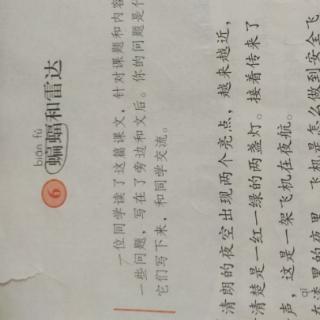 biān fú
6 蝙蝠和雷达
一位同学读了这篇课文，针对课题和内容
一些问题，写在了旁边和文后。你的问题是什
它们写下来，和同学交流。
清朗的夜空出现两个亮点，越来越近，
清楚是一红一绿的两盏灯。接着传来了
声，这是一架飞机在夜航。
qī
在漆黑的夜里，飞机是怎么做到安全飞